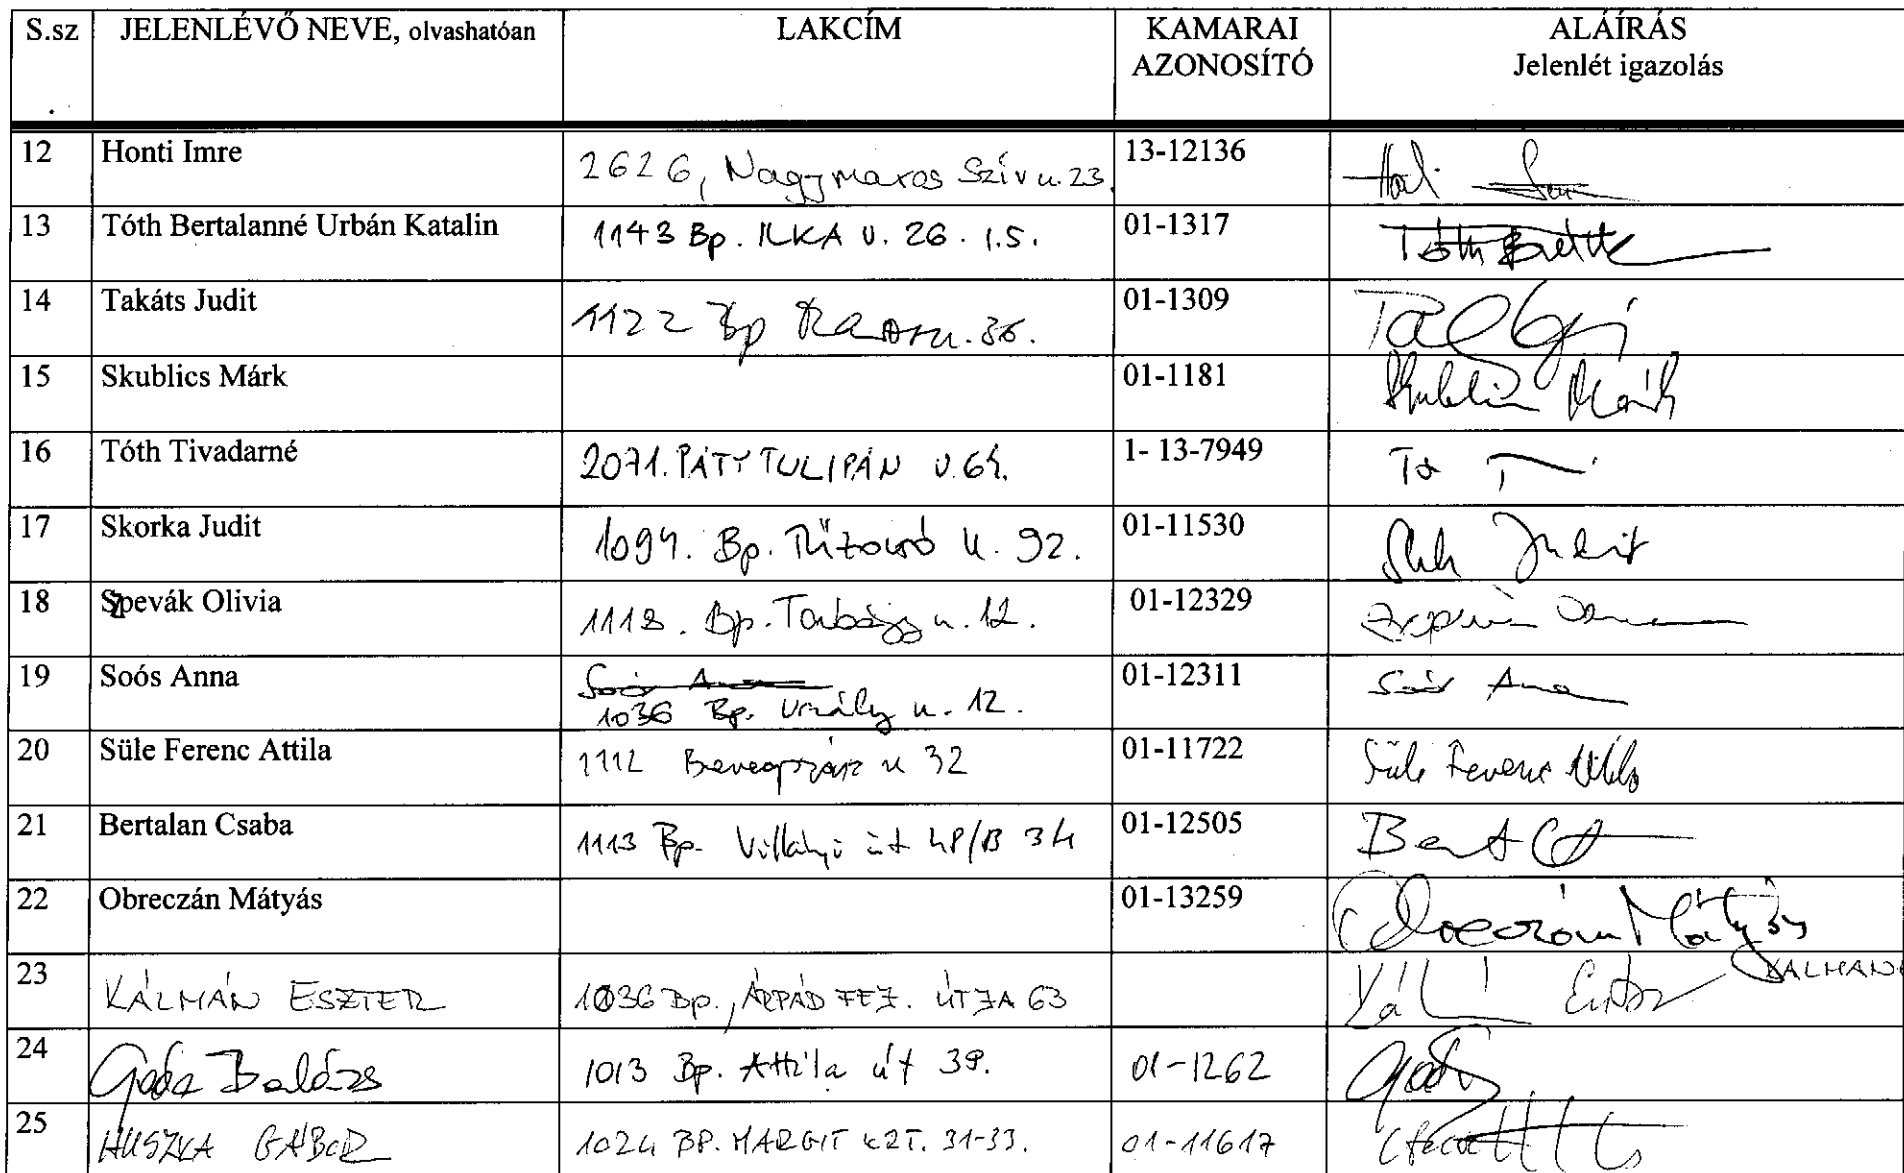 S.sz . JELENLÉVŐ NEVE, olvashatóan LAKCÍM KAMARAI AZONOSÍTÓ ALÁÍRÁS Jelenlét igazolás
12 Honti Imre 2626, Nagymaros Szív u. 23. 13-12136
13 Tóth Bertalanné Urbán Katalin 1143 Bp. ILKA U. 26. I.5. 01-1317
14 Takáts Judit 1122 Bp 36. 01-1309
15 Skublics Márk 01-1181 Skublics Márk
16 Tóth Tivadarné 2071. PÁTY TULIPÁN U. 64. 1- 13-7949
17 Skorka Judit 1094. Bp. Tűzoltó u. 92. 01-11530 Judit
18 Szpevák Olívia 1118. Bp. Torbágy u. 12. 01-12329
19 Soós Anna Soós Anna 01-12311 Soós Anna
1036 Bp. u. 12.
20 Süle Ferenc Attila 1112 u 32 01-11722 Süle Ferenc Attila
21 Bertalan Csaba 1113 Bp. Villányi út 01-12505
22 Obreczán Mátyás 01-13259 Obreczán Mátyás
23 KÁLMÁN ESZTER 1036 Bp., ÁRPÁD FEJ. ÚTJA 63 KÁLMÁN
24 Balázs 1013 Bp. Attila út 39. 01-1262
25 HUSZKA GÁBOR 1024 BP. MARGIT KRT. 31-33. 01-11617